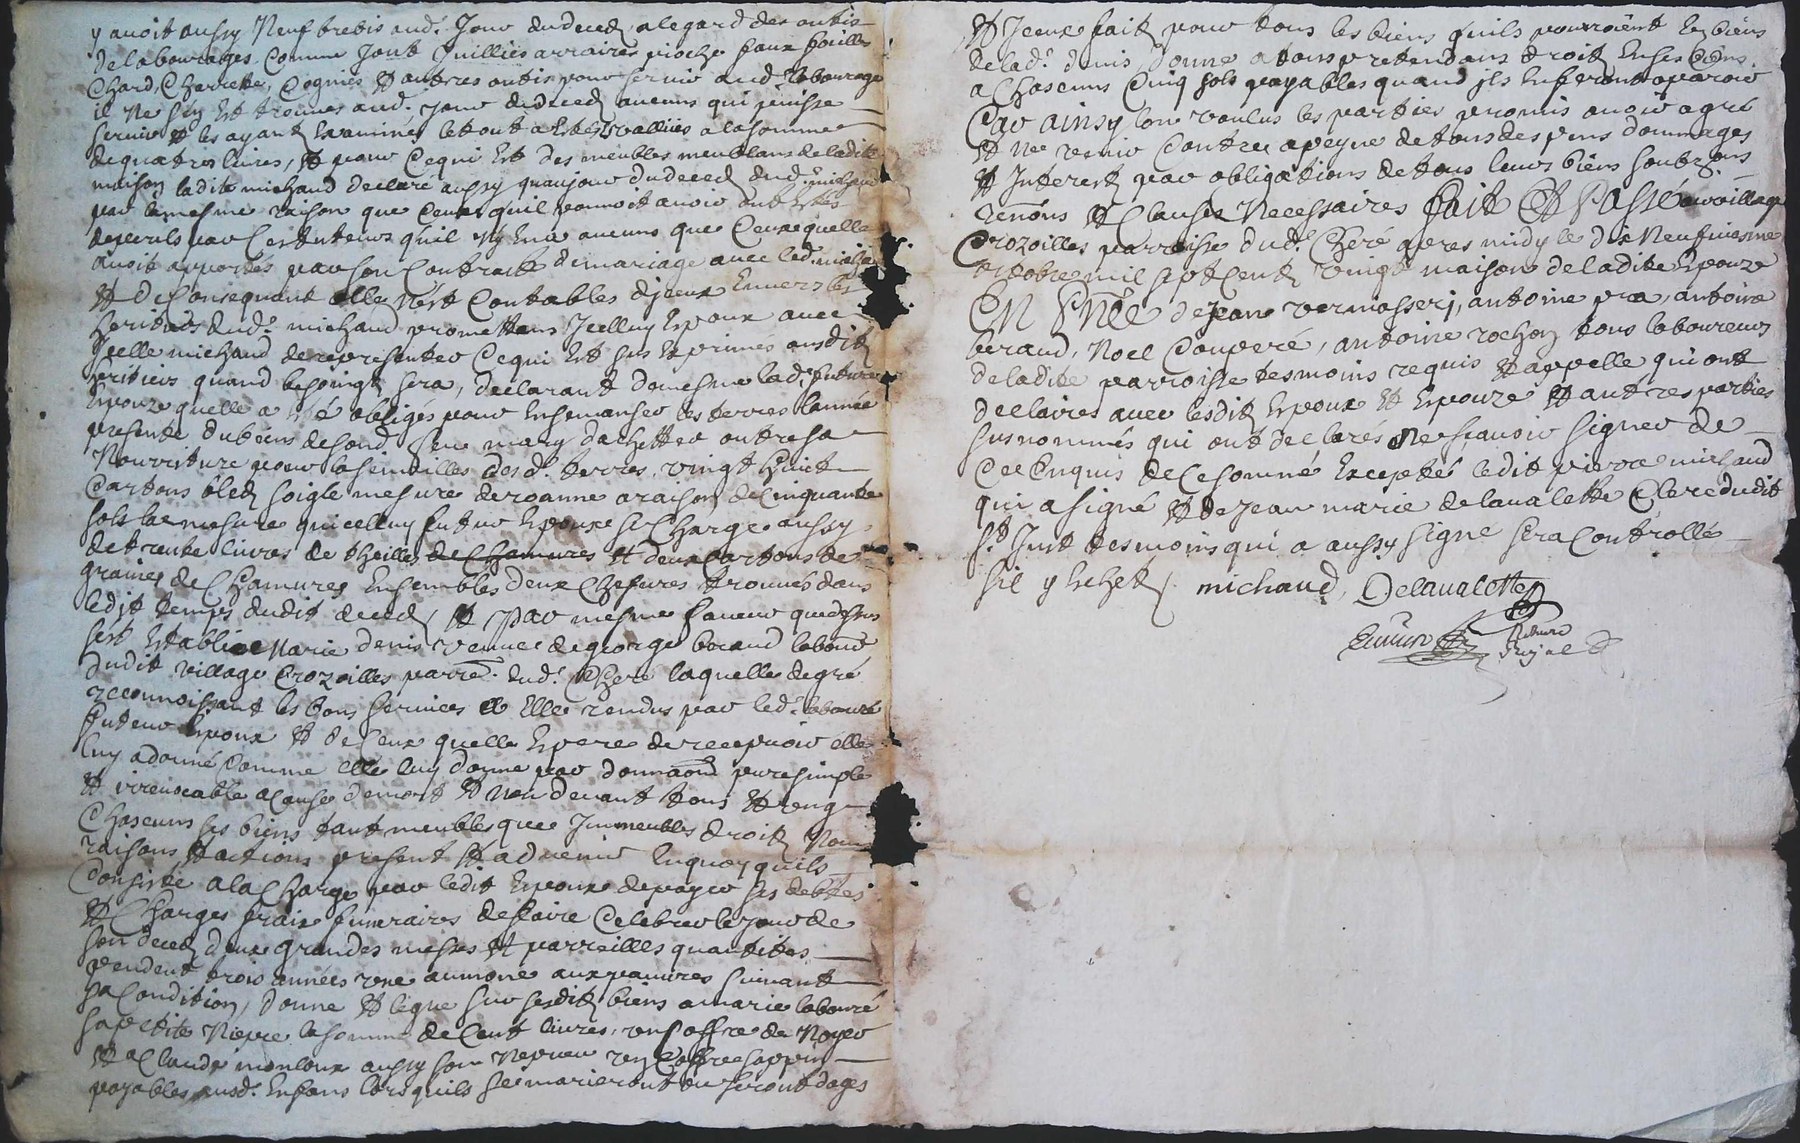 y avoit aussy Neuf brebis aud. Jour dudeced, alegard des outis
delabourages Comme Sont Cuilliers arraires pioche faux fouilles
Chard, Charrette, Cognies Et autres outis pour servir aud. labourage
il Ne sen Est trouves aud. Jour dudeced aucuns qui puisse
servir Et les ayant Examinés letout a Estes Evalliues a lasomme
dequatre livres, Et pour Cequi Est des meubles meublans deladite
maison ladite michaud declaré aussy quaujour dudeced dud. michaud
par lamesme raison que Ceux quil pouvoit avoir ont Estes
par Cestuteurs quil Ny En a aucuns que Ceux quelle
avoit apportés par son Contract de mariage avec led.
Et deConsequant elle N'est Contables diceux Envers les
heritiers dud. michaud promettans Icelluy Epoux avec
Icelle michaud derepresenter Cequi Est sus Exprimes ausdits
heritiers quand besoingt sera, declarant demesme lad. future
Epouze quelle a été obligés pour Ensemanser les terres lannée
presente dubiens desond. feu mary dachetter outresa
Nourriture pour lasemailles desd. terres vingt huict
Cartons bled soigle mesure deroanne araison deCinquante
sols la mesure quicelluy futur Epoux se Charge aussy
detrente livres de theilles de Chanvres Et deux Cartons de
graines de Chanvres Ensembles deux Chevres trouvés dans
ledit temps dudit deced, Et Par mesme faveur quedessus
sest Establie Marie denis veuve de george beraud laboureur
dudit village Crozoilles parre. dud. Chere laquelle degré
reconnoissant les bons services a Elle rendus par led. labouré
futeur Epoux Et deCeux quelle Espere derecepvoir elle
luy adonné Comme elle luy donne par donnaon puresimple
Et irrevocable acause demort Et Non devant tous Et ung
Chascuns ses biens tant meubles que Immeubles droits Noms
raisons Et actions present Et advenir Enquoy quils
Consiste alaCharge par ledit Epoux depayer ses debtes
Et Charges frais funeraires defaire Celebrer le jour de
son deced deux grandes messes Et parreilles quantites
pendent trois années une aumone aux pauvres suivant
sa Condition, Donne Et legue sur sesdits biens a marie labouré
sapetite Niepce lasomme de Cent livres, un Coffre de Noyer
Et a Claude monloux aussy son Nepveu un Coffre sappin
payables ausd. Enfans lorsquils se marieront ou seront dages
Et Jceux fait pour tous les biens quils pourroient Es biens
delad. denis, Donne a tous pretendans droit Ensesbiens
a Chascuns Cinq sols payables quand ils Enferont aparoir
Car ainsy lon voulus les parties promis avoir agré
Et Ne venir Contre a peyne detous despens dommages
Et Interest par obligations detous leurs biens soubzons
renons Et Clauses Necessaires fait Et Passé auvillage
Crozoilles parroisse dud. Cheré apres midy le dix Neufviesme
octobre mil sept Cents vingt maison deladite Epouze
EN PNCE deJean vermasserj, antoine pra, antoine
beraud, Noel Couperé, antoine rochon tous laboureurs
deladite parroisse tesmoins requis Et appelle qui ont
declaires avec lesdits Epoux Et Epouze Et autres parties
susnommés qui ont declarés Nescavoir signer de
Ce Enquis deCesommé Exceptés ledit pierre michaud
qui asigné Et deJean marie delavalette Clerc dudit
St. Just tesmoins qui a aussy signe sera Controllés
sil y Eschet. michaud, Delavalette
Royal